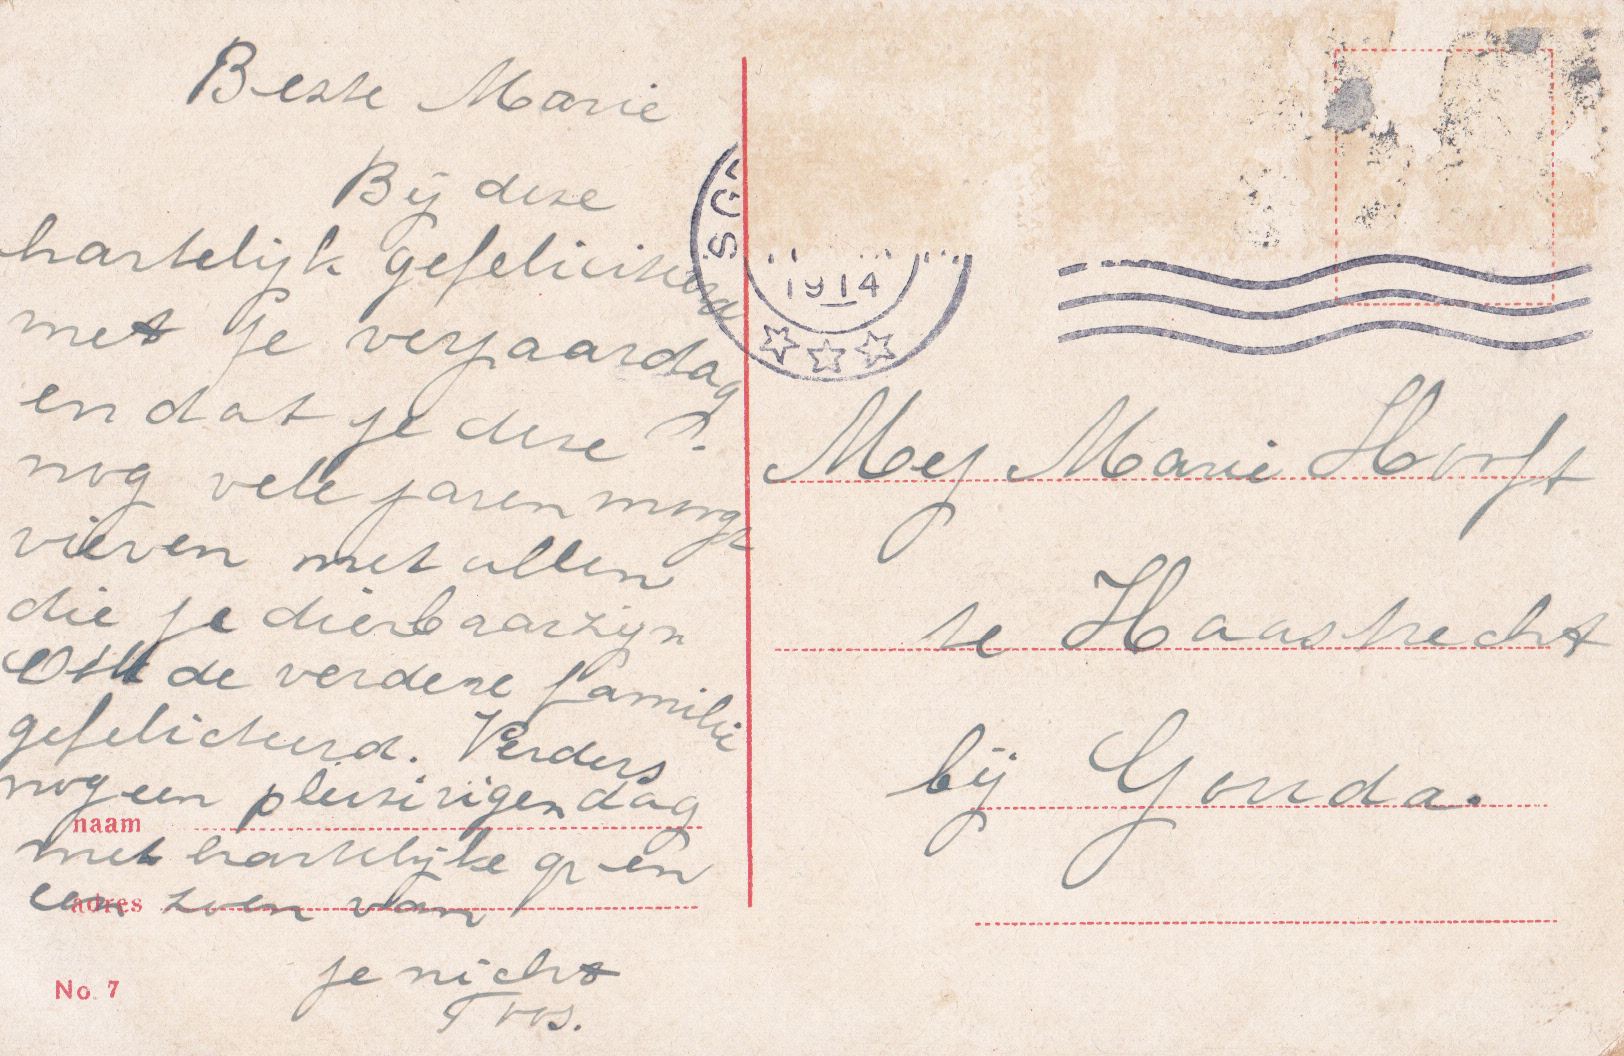 Beste Marie
Bij deze
hartelijk gefeliciteerd
met je verjaardag
en dat je deze
nog vele jaren moogt
vieren met allen
die je dierbaar zijn
Ook de verdere familie
gefeliciteerd. Verders
nog een pleizirigen dag
met hartelijke gr en
een zoen van
je nicht
Troos.
naam
adres
No. 7
SG
1914
Mej Marie Hooft
te Haastrecht
bij Gouda.